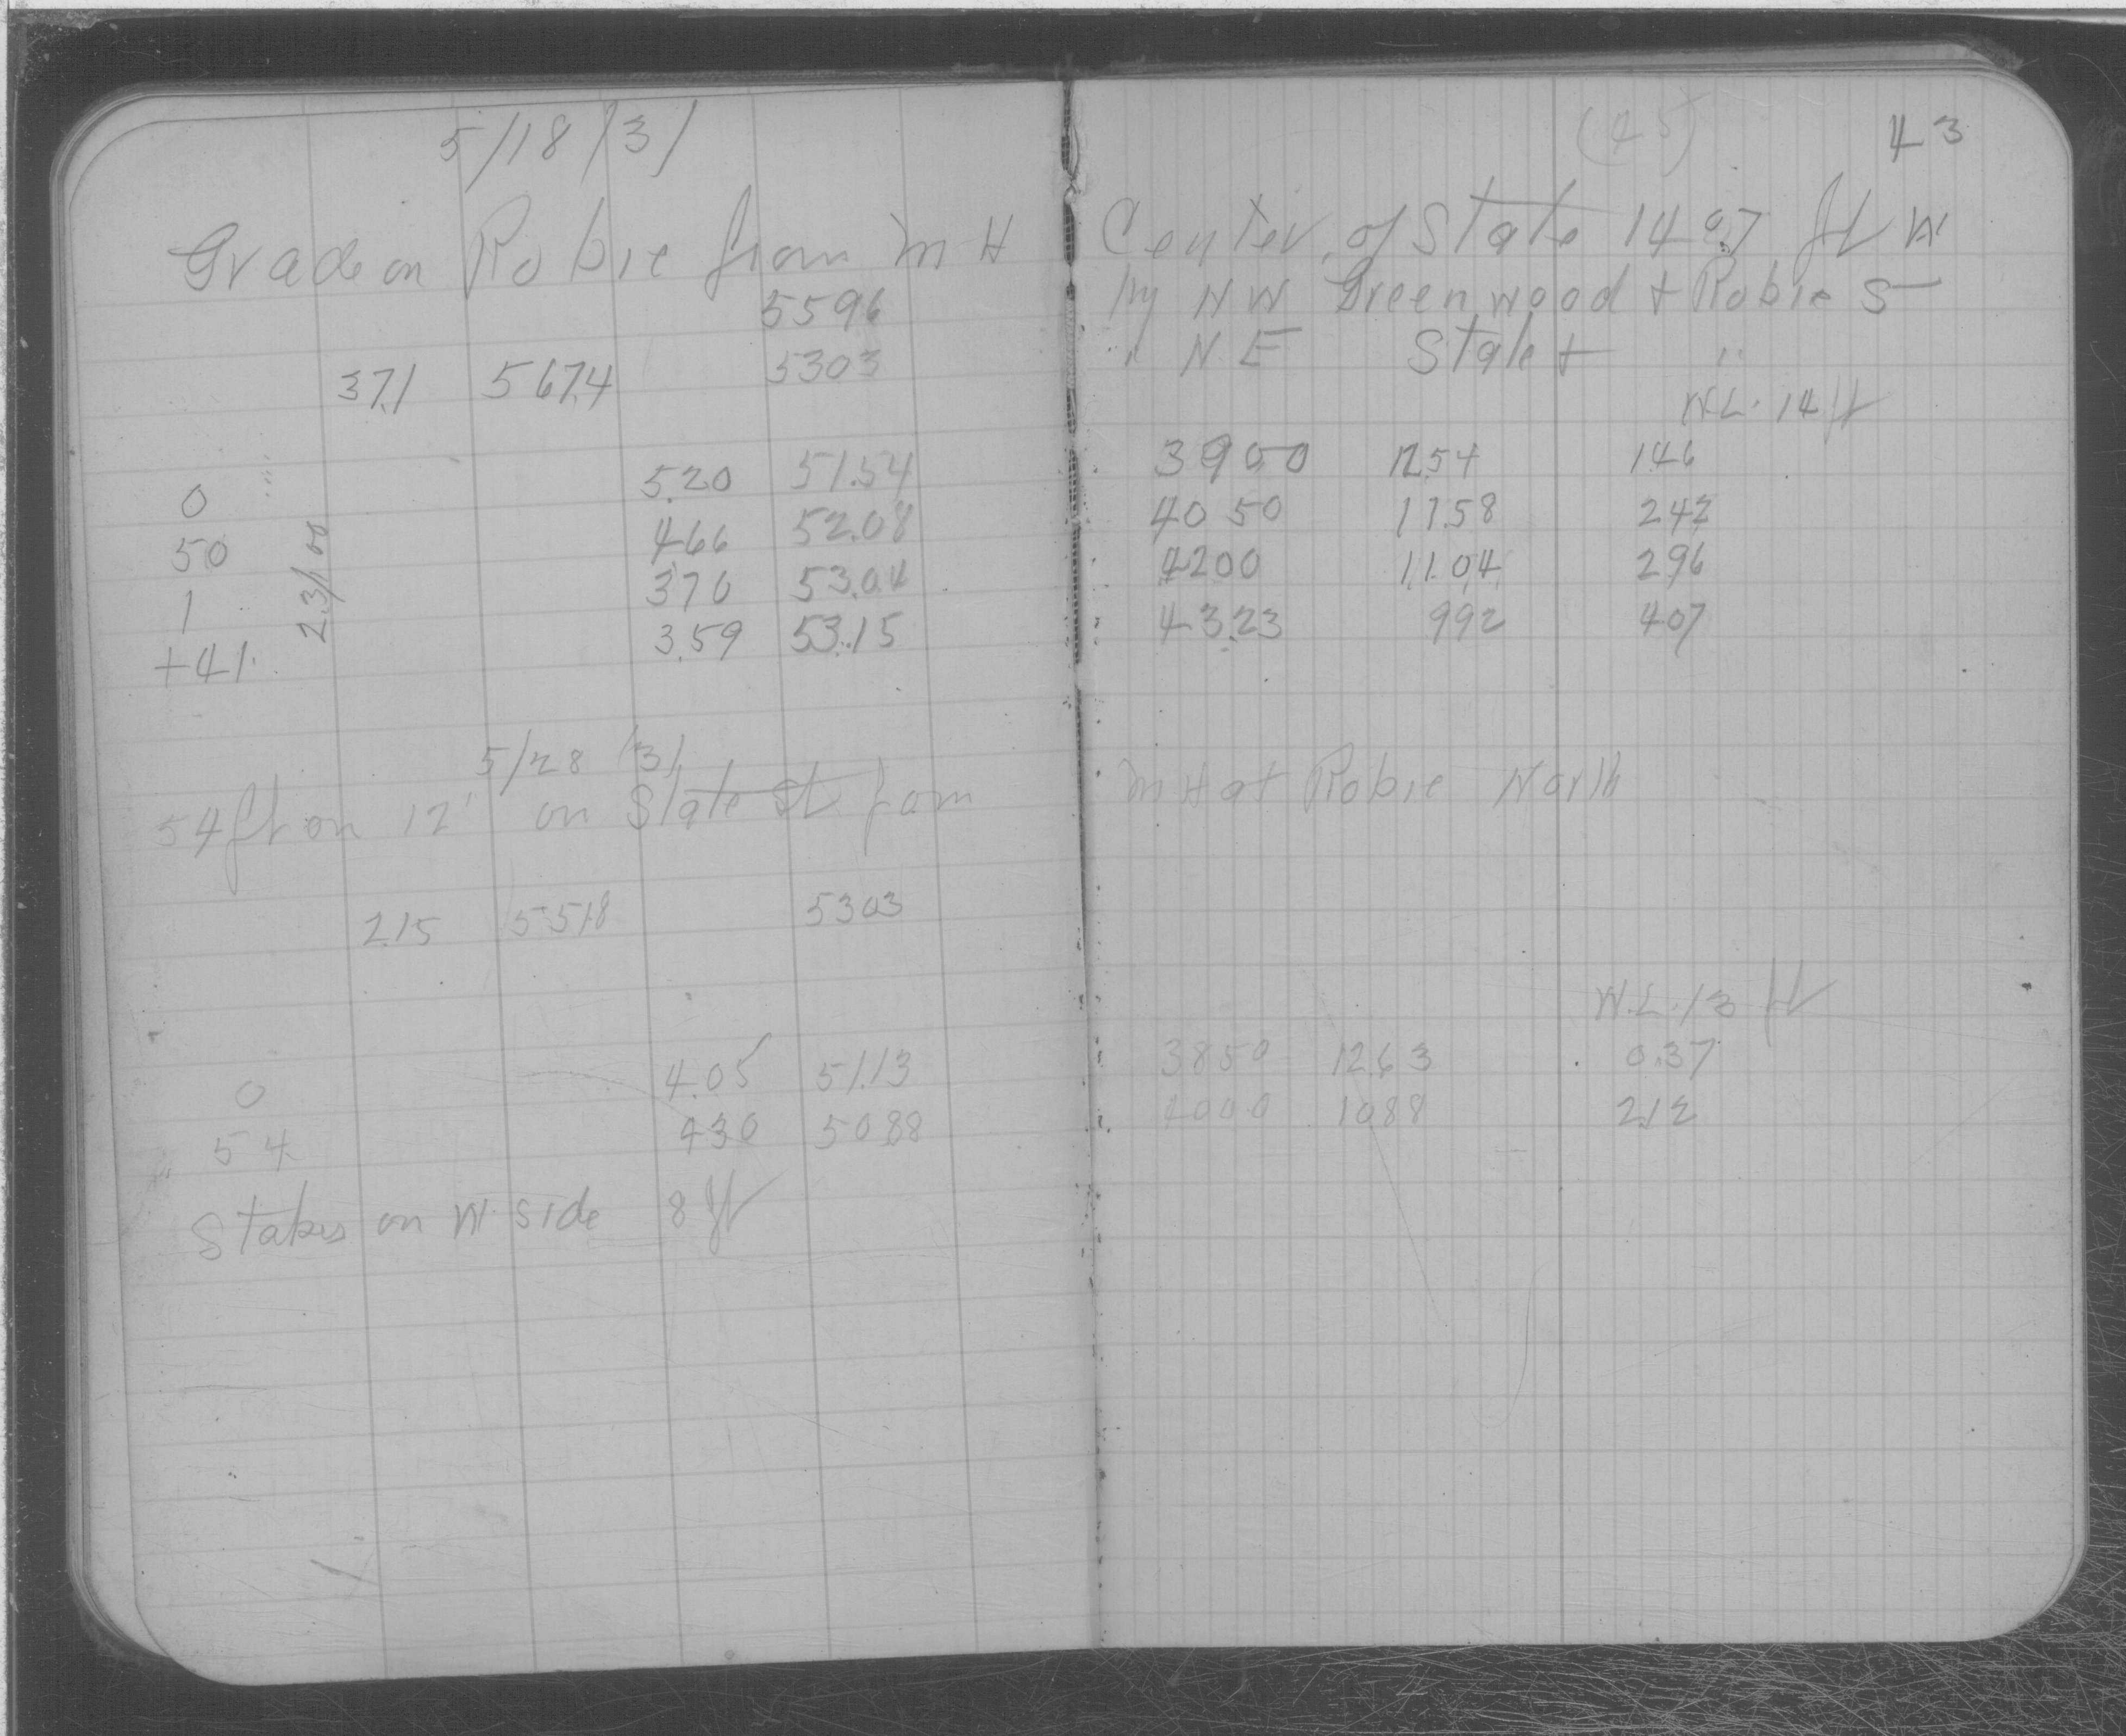 5/18/31
Grade on Robie from M H
5596
37.1 567.4 5303
0 5.20 51.54
50 466 52.08
1 370 53.04
+41 3.59 53.15
2.3/100
5/28/31
54 ft on 12" on State St from
2.15 5518 5303
0 4.05 51.13
54 430 5088
Stakes on W side 8 ft
(45) 43
Center of State 149.7 ft W
Hy N W Greenwood + Robie S
" N E State + "
W.L. 14 ft
3900 12.54 146
4050 11.58 242
4200 11.04 296
43.23 992 407
M H at Robie North
W.L. 13 ft
3850 12.63 0.37
4000 1088 2.12